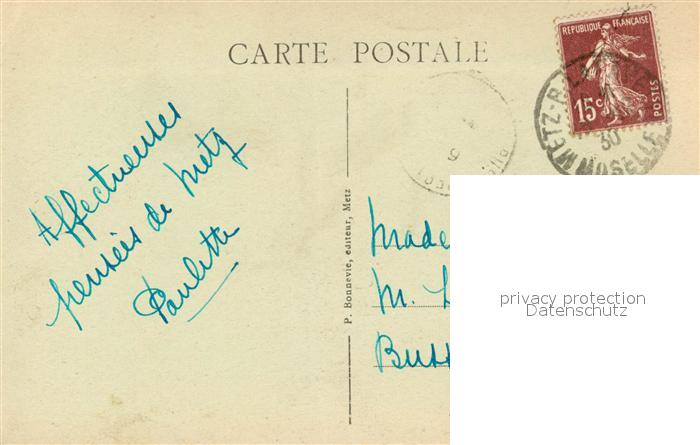 CARTE POSTALE
REPUBLIQUE FRANÇAISE
15c
POSTES
METZ-R.
30
MOSELLE
Affectueuses
pensées de Metz
Paulette
P. Bonnevie, éditeur, Metz
Made
M. L
Buss
privacy protection
Datenschutz